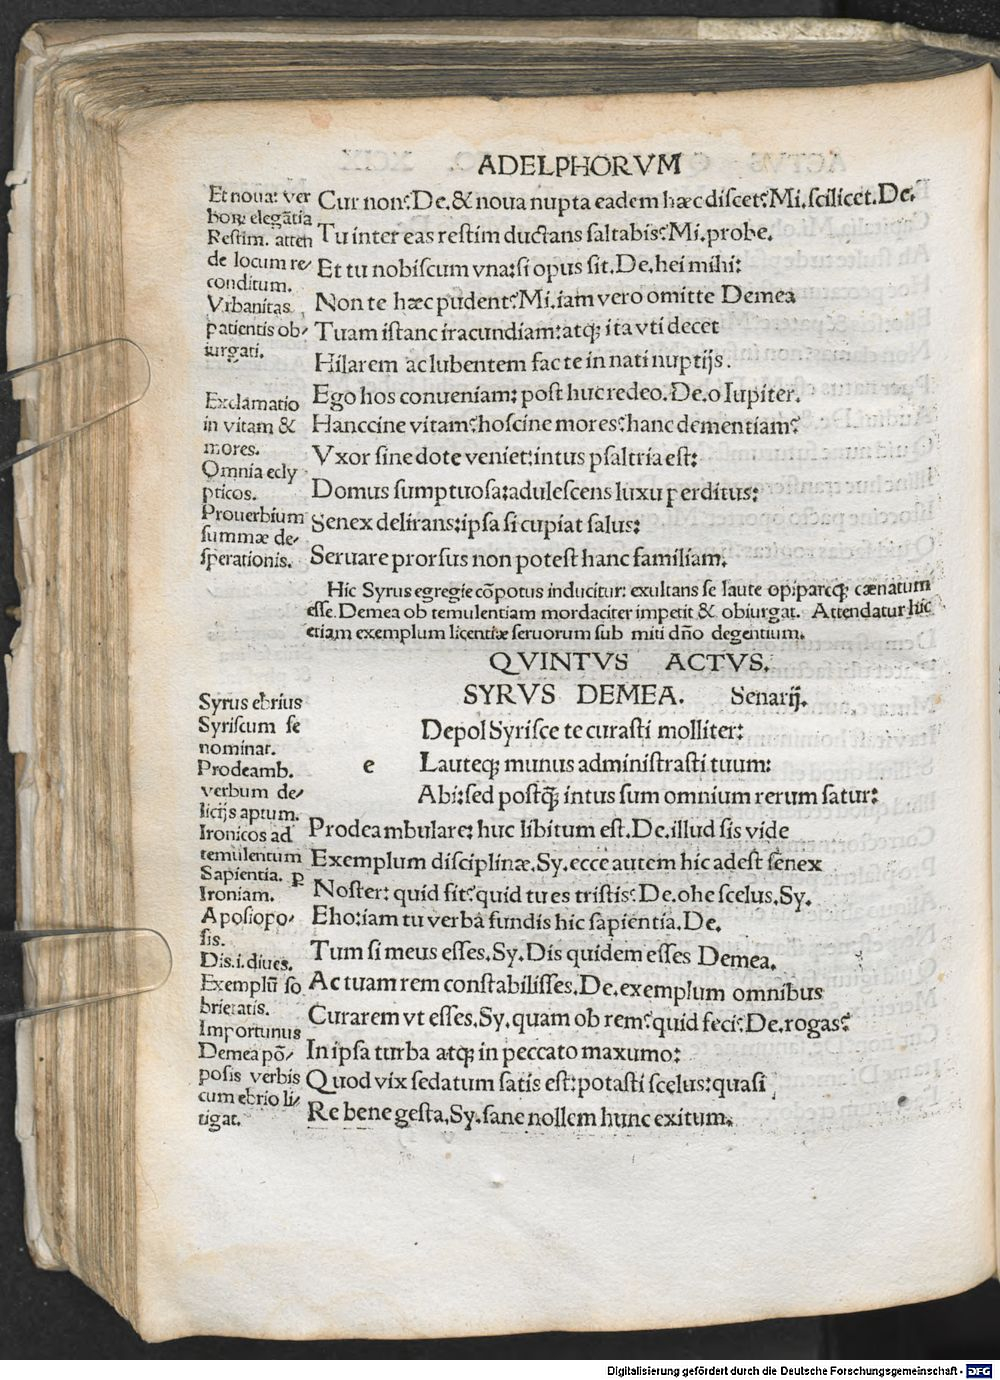 ADELPHORVM
Et noua: ver
bor. elegãtia
Restim. atten
de locum re⸗
conditum.
Vrbanitas
patientis ob⸗
iurgati.
Exclamatio
in vitam &
mores.
Omnia ecly
pticos.
Prouerbium
summæ de⸗
sperationis.
Cur non? De. & noua nupta eadem hæc discet? Mi. scilicet. De.
Tu inter eas restim ductans saltabis? Mi. probe.
Et tu nobiscum vna: si opus sit. De. hei mihi:
Non te hæc pudent? Mi. iam vero omitte Demea
Tuam istanc iracundiam: atq; ita vti decet
Hilarem ac lubentem fac te in nati nuptijs.
Ego hos conueniam: post huc redeo. De. o Iupiter.
Hanccine vitam? hoscine mores? hanc dementiam?
Vxor sine dote veniet: intus psaltria est:
Domus sumptuosa: adulescens luxu perditus:
Senex delirans: ipsa si cupiat salus:
Seruare prorsus non potest hanc familiam.
Hic Syrus egregie cõpotus inducitur: exultans se laute opipareq; cænatum
esse. Demea ob temulentiam mordaciter impetit & obiurgat. Attendatur hic
etiam exemplum licentiæ seruorum sub miti dño degentium.
QVINTVS ACTVS.
SYRVS DEMEA. Senarij.
Syrus ebrius
Syriscum se
nominat.
Prodeamb.
verbum de⸗
licijs aptum.
Ironicos ad
temulentum
Sapientia. ꝑ
Ironiam.
Aposiopo⸗
sis.
Dis. i. diues.
Exemplũ so
brietatis.
Importunus
Demea põ⸗
posis verbis
cum ebrio li⸗
tigat.
Depol Syrisce te curasti molliter:
e Lauteq; munus administrasti tuum:
Abi: sed postq̃; intus sum omnium rerum satur:
Prodeambulare: huc libitum est. De. illud sis vide
Exemplum disciplinæ. Sy. ecce autem hic adest senex
Noster: quid fit? quid tu es tristis? De. ohe scelus. Sy.
Eho: iam tu verba fundis hic sapientia. De.
Tum si meus esses. Sy. Dis quidem esses Demea.
Ac tuam rem constabilisses. De. exemplum omnibus
Curarem vt esses. Sy. quam ob rem? quid feci? De. rogas?
In ipsa turba atq; in peccato maxumo:
Quod vix sedatum satis est: potasti scelus: quasi
Re bene gesta. Sy. sane nollem hunc exitum.
Digitalisierung gefördert durch die Deutsche Forschungsgemeinschaft - DFG